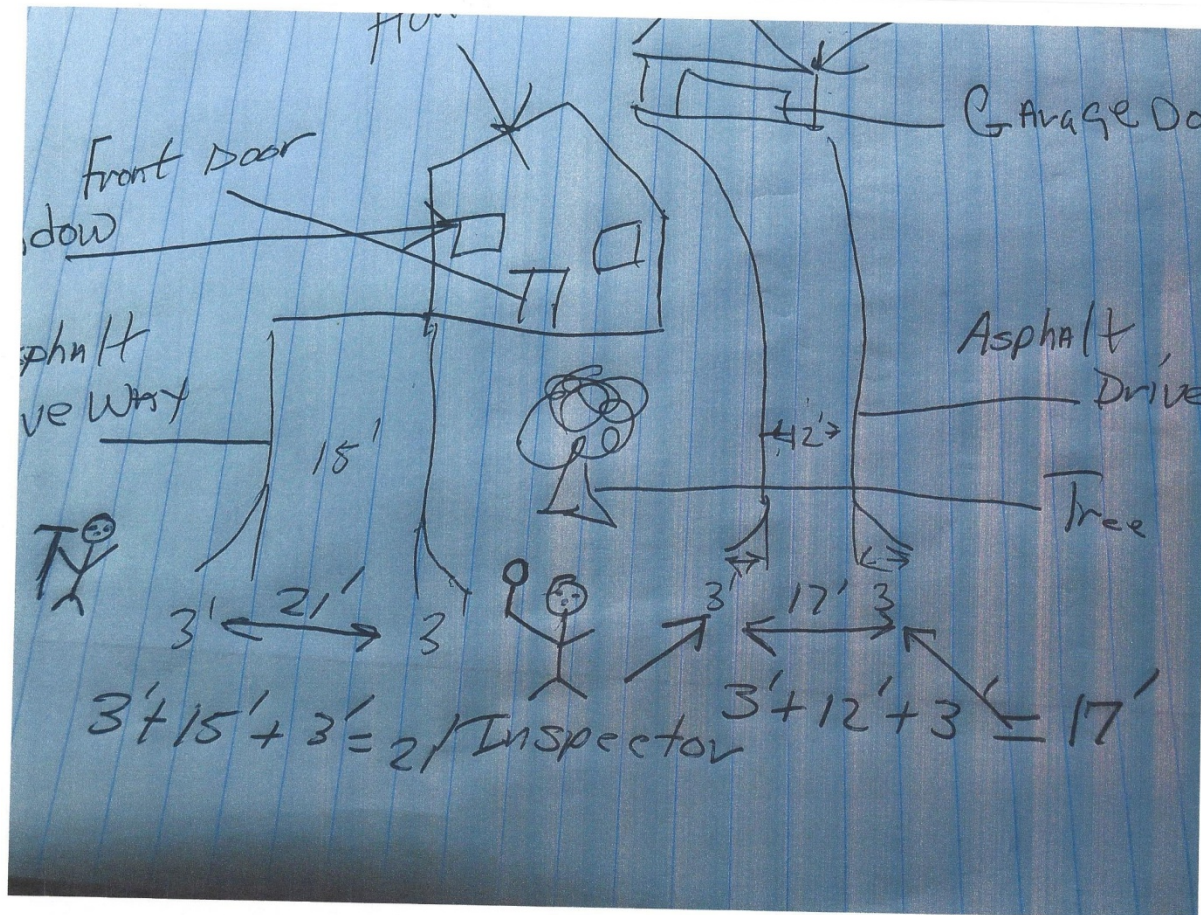 How
GArage Do
Front Door
dow
sphalt
ve WAY
Asphalt
Drive
15'
12'
Tree
3' 21' 3
3' 17' 3
3'+15'+3'=21
Inspector
3'+12'+3'=17'